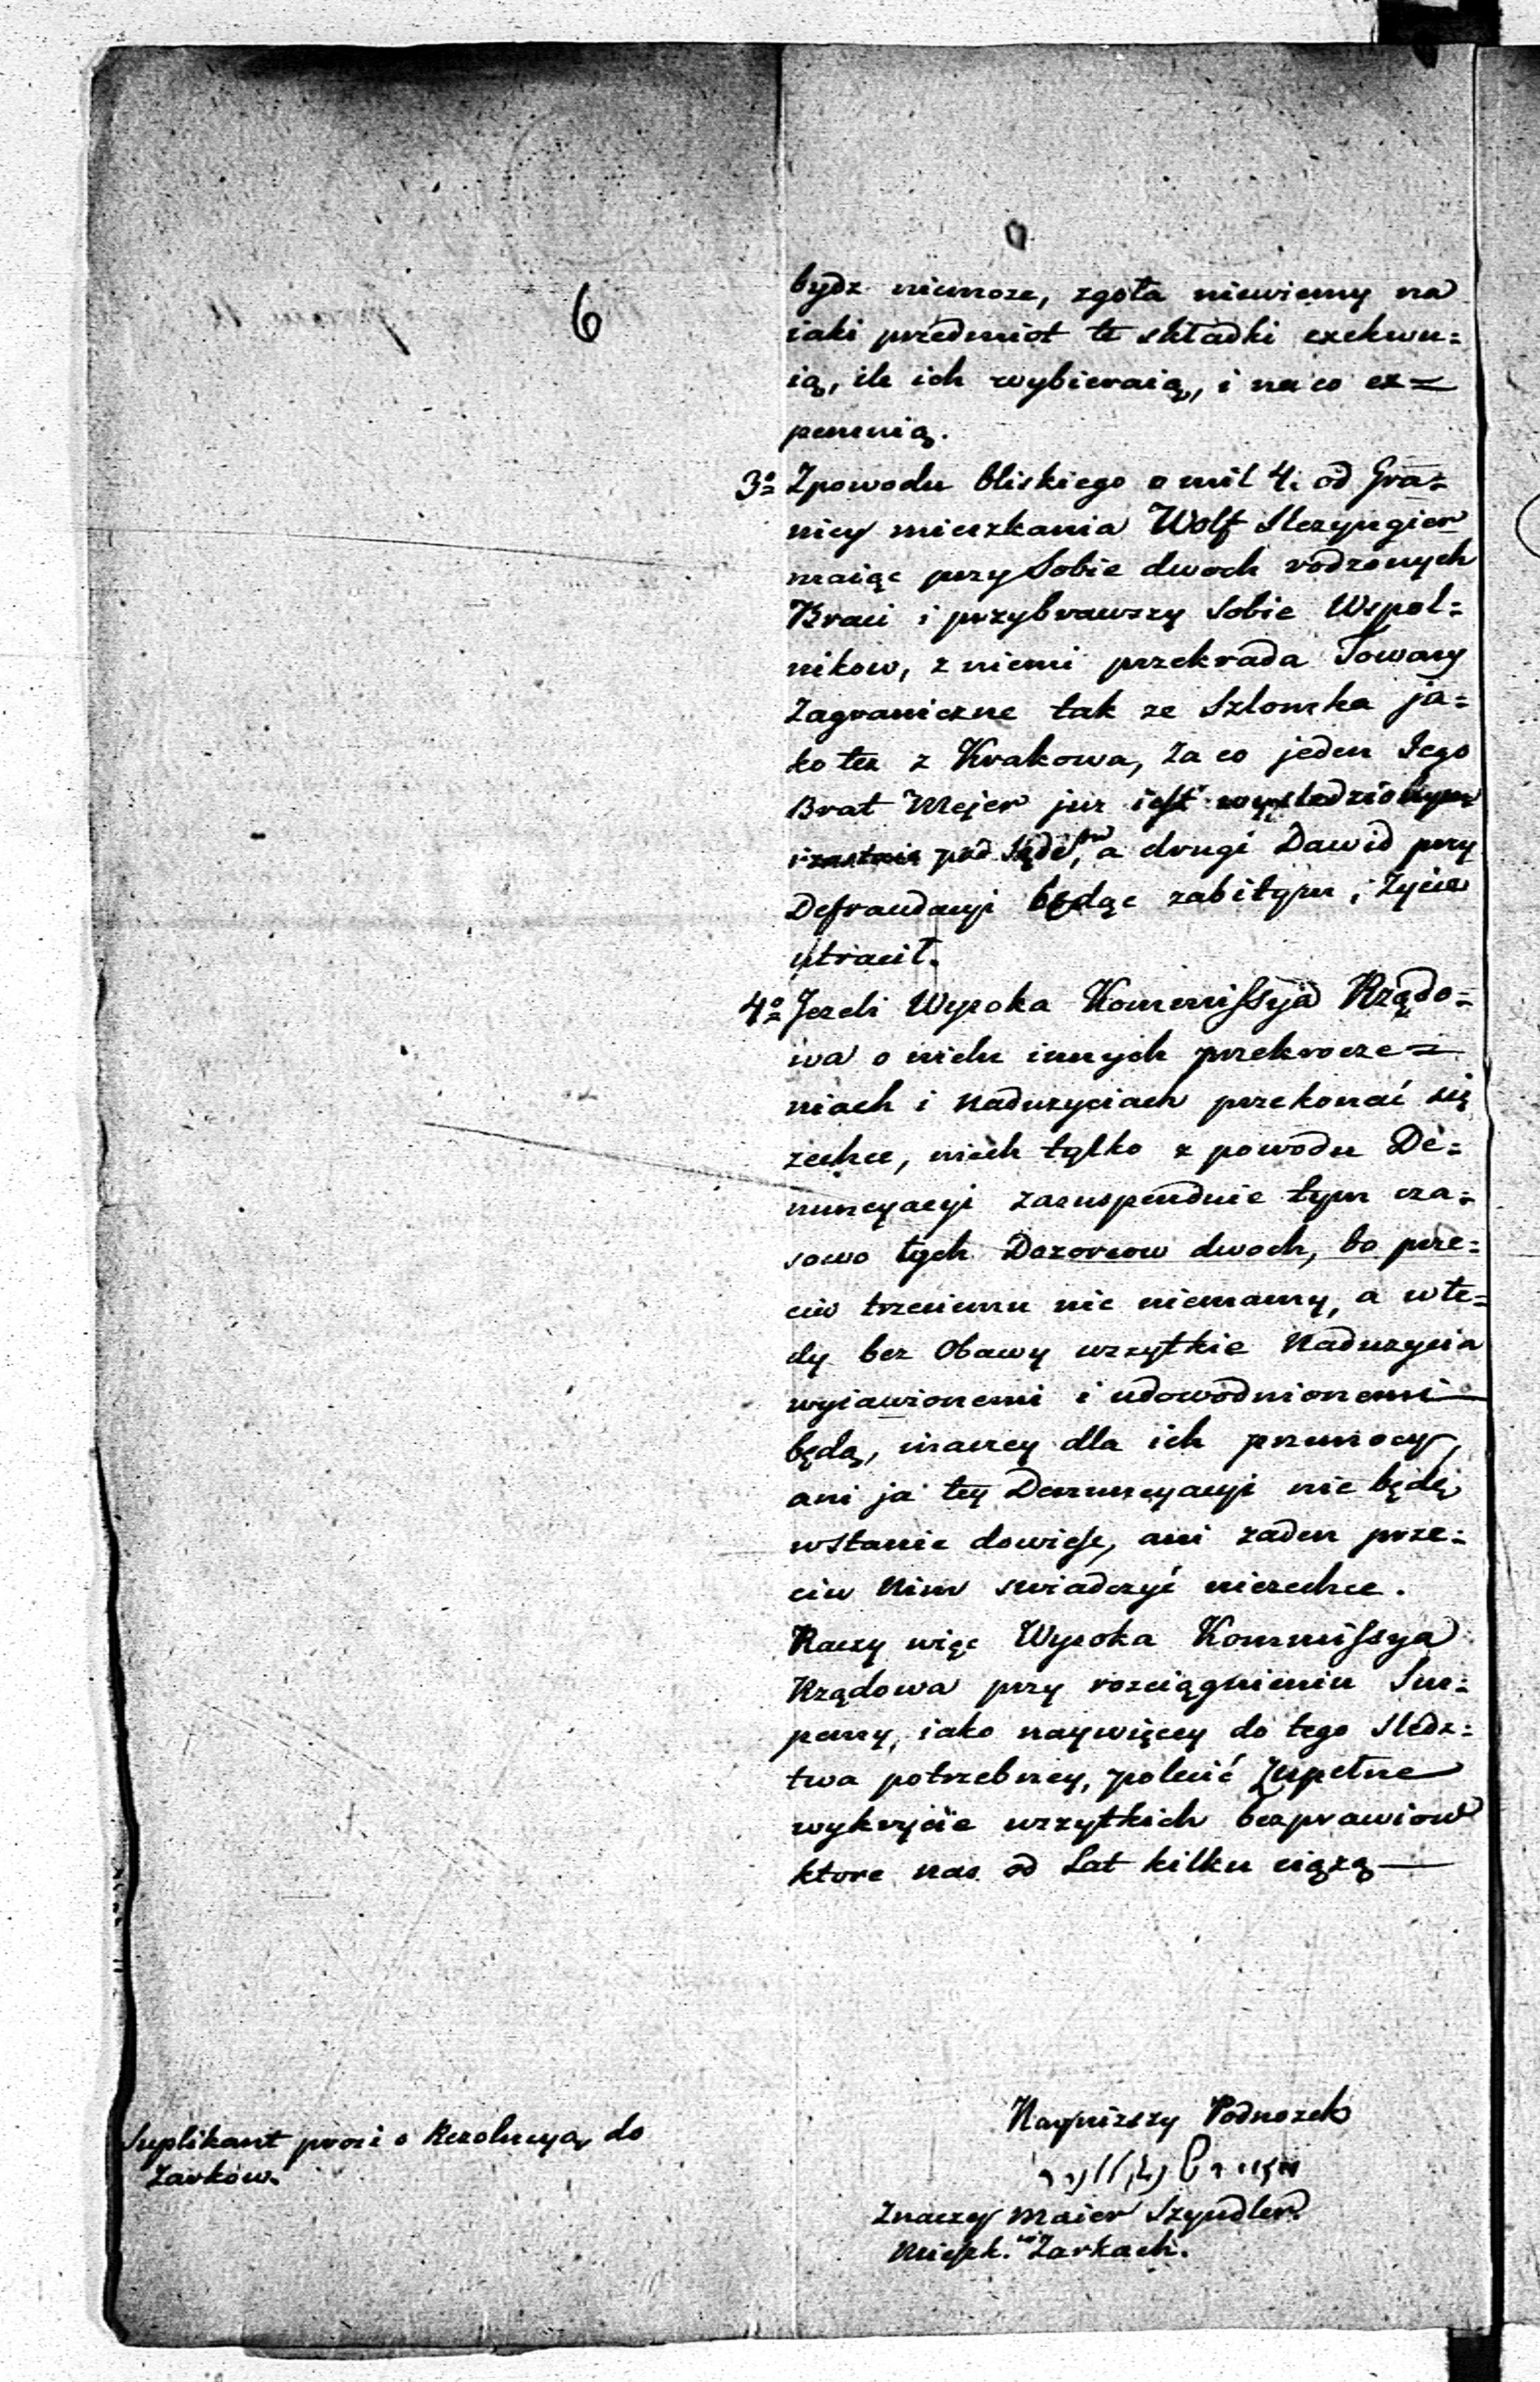 6
bydz niemoze, zgoła niewiemy na
iaki przedmiot te składki exekwu=
ią, ile ich wybieraią, i na co ex=
penenią.
3o Zpowodu bliskiego o mil 4. od Gra=
nicy mieszkania Wolf Slezyngier
maiąc przy Sobie dwoch rodzonych
Braci i przybrawszy Sobie Wspol=
nikow, z niemi przekrada Towary
Zagraniczne tak ze Szlonska ja=
ko tez z Krakowa, za co jeden Jego
Brat Mejer juz iest wysledzionym
pod Sądem, a drugi Dawid przy
Defraudacyi będąc zabitym, Zycie
utracił.
4o Jezeli Wysoka Kommissya Rządo=
wa o wielu innych przekrocze=
niach i Naduzyciach przekonać się
zechce, niech tylko z powodu De=
nuncyacyi zasuspenduie tym cza=
sowo tych Dozorcow dwoch, bo prze=
ciw trzeciemu nic niemamy, a wte=
dy bez Obawy wszytkie Naduzycia
wyiawionemi i udowodnionemi
będą, inaczey dla ich przemocy
ani ja tey Denuncyacyi nie będę
wstanie dowiesc, ani zaden prze=
ciw Nim swiadczyć niezechce.
Raczy więc Wysoka Kommissya
Rządowa przy rozciągnieniu Sus=
pensy, iako naywięcey do tego Sledz=
twa potrzebney, polecić Zupełne
wykrycie wszytkich bezprawiow
ktore nas od Lat kilku ciązą —
Naynizszy Podnozek
Znaczy Maier Szyndler
Mieszk. w Zarkach.
Suplikant prosi o Rezolucyą do
Zarkow.